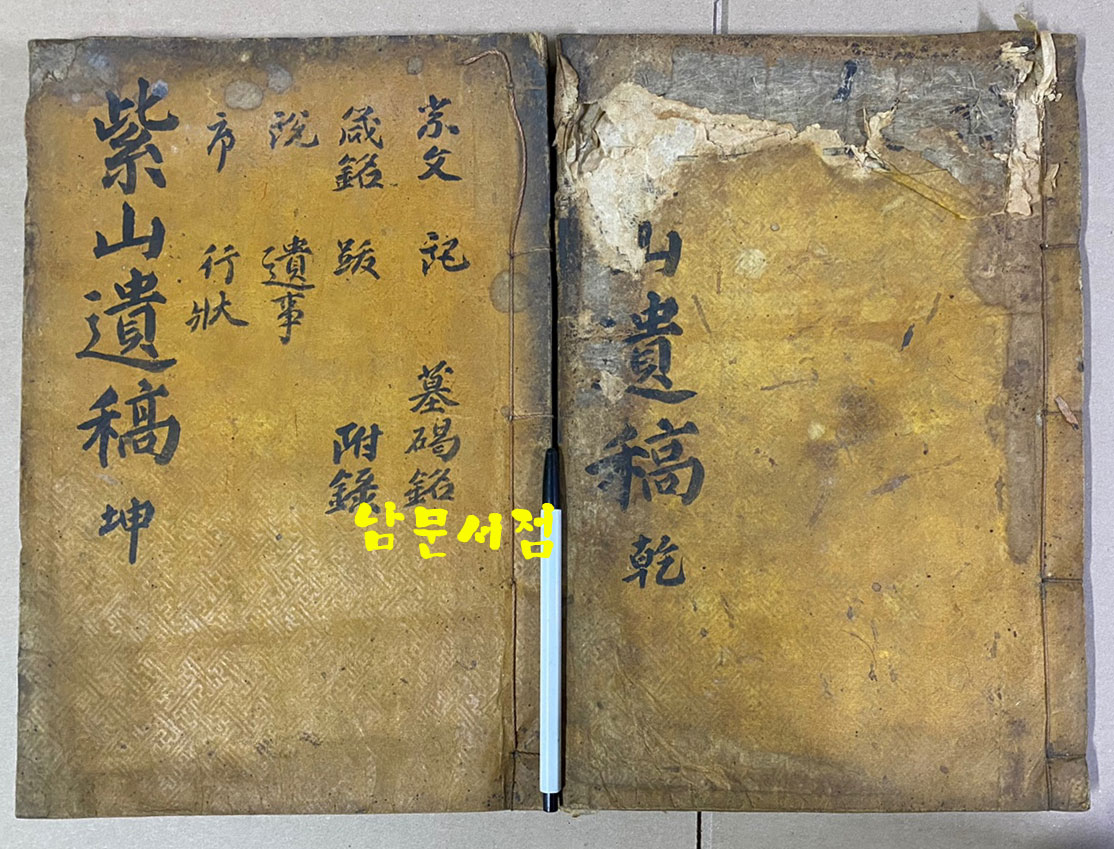 山遺稿 乾
祭文 記 墓碣銘
箴銘 跋 附錄
說 遺事
序 行狀
紫山遺稿 坤
남문서점